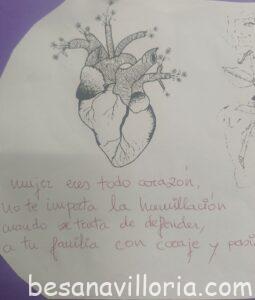 mujer eres todo corazón,
no te importa la humillación
cuando se trata de defender,
a tu familia con coraje y
besanavilloria.com